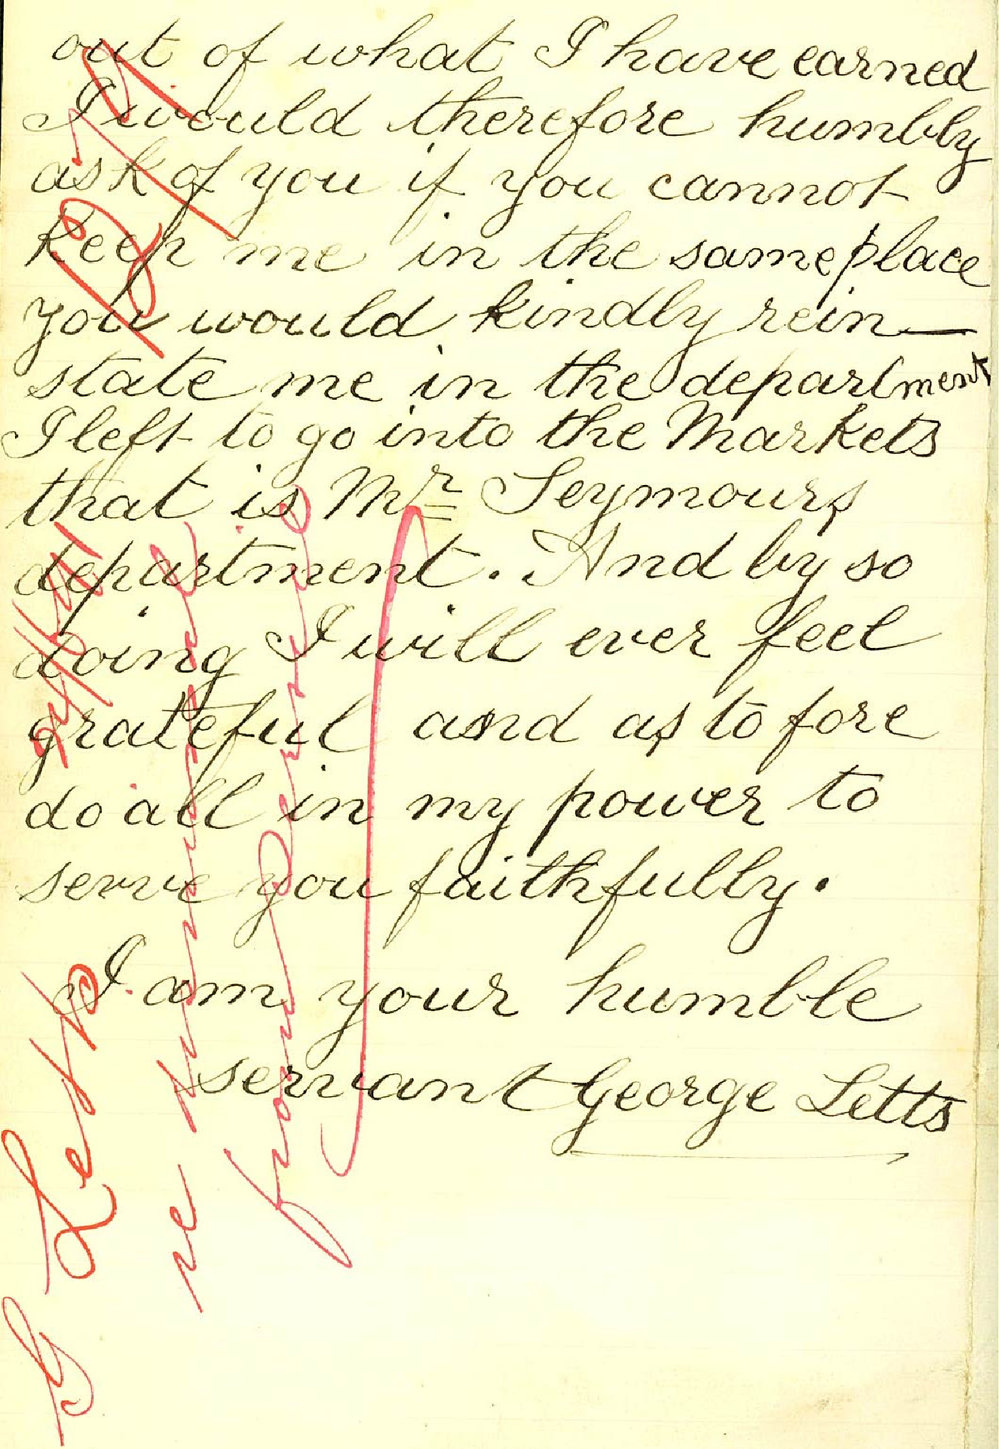 out of what I have earned
I would therefore humbly
ask of you if you cannot
keep me in the same place
you would kindly rein—
state me in the department
I left to go into the Markets
that is Mr Seymours
department. And by so
doing I will ever feel
grateful and as to fore
do all in my power to
serve you faithfully.
I am your humble
servant George Letts
G Letts
re dismissal
from Service